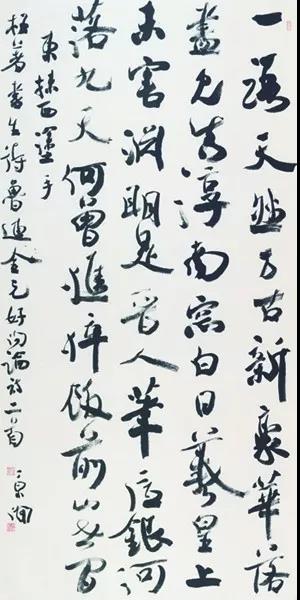 一語天然万古新豪華落
盡見真淳南窗白日羲皇上
未害淵明是晉人筆底銀河
落九天何曾憔悴飯前山世間
東抹西塗手
枉著書生待魯連金元好问論詩二首